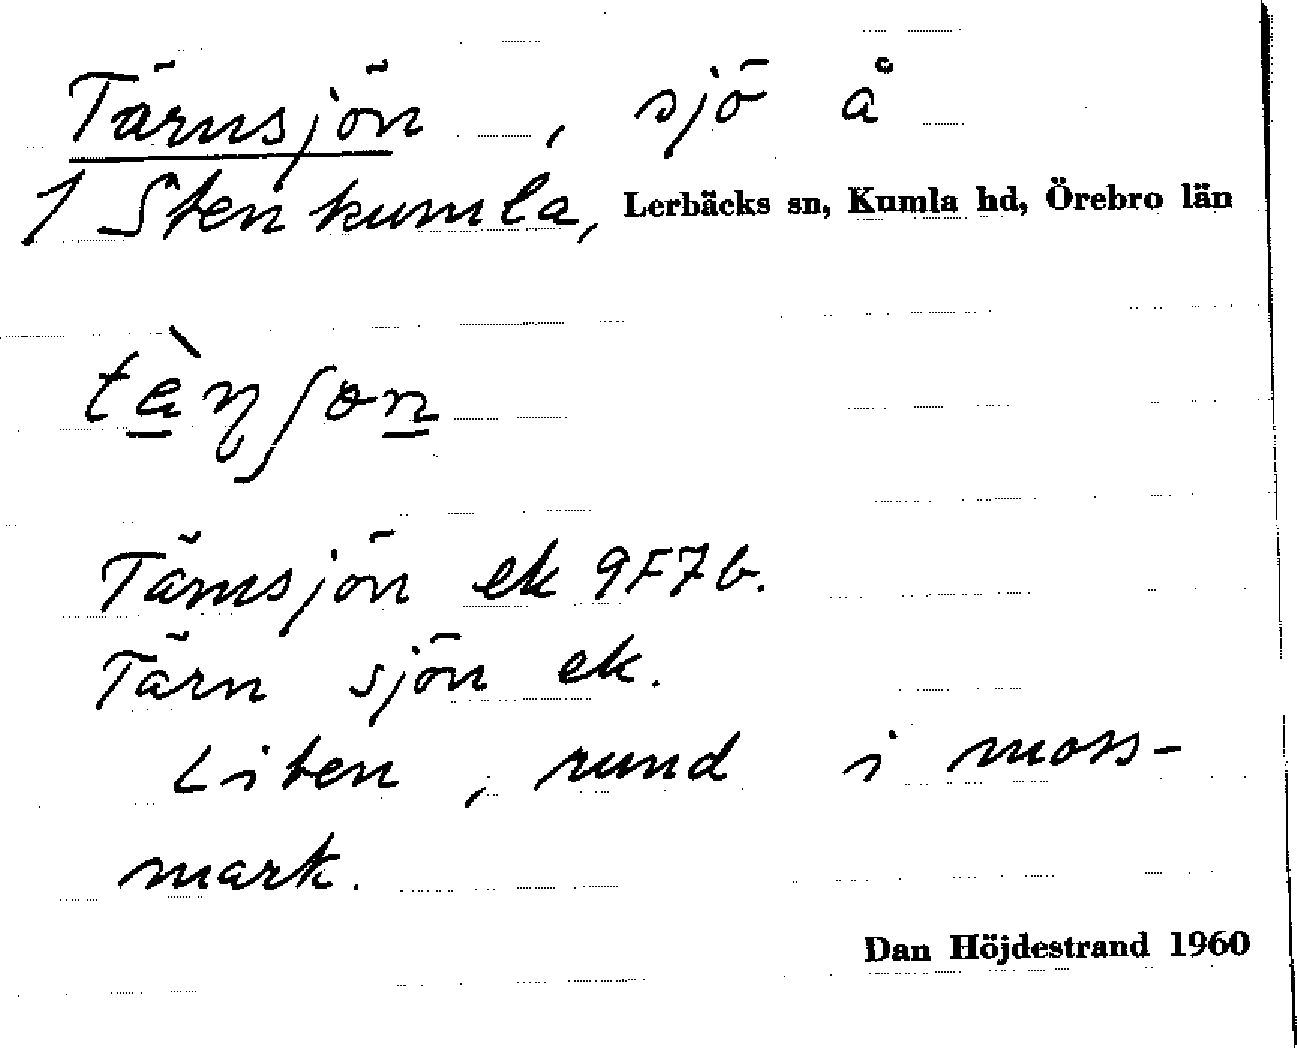 Tärnsjön, sjö å
1 Stenkumla, Lerbäcks sn, Kumla hd, Örebro län
tæ̀ɳʃon
Tärnsjön ek 9F7b.
Tärn sjön ek.
Liten, rund i moss-
mark.
Dan Höjdestrand 1960